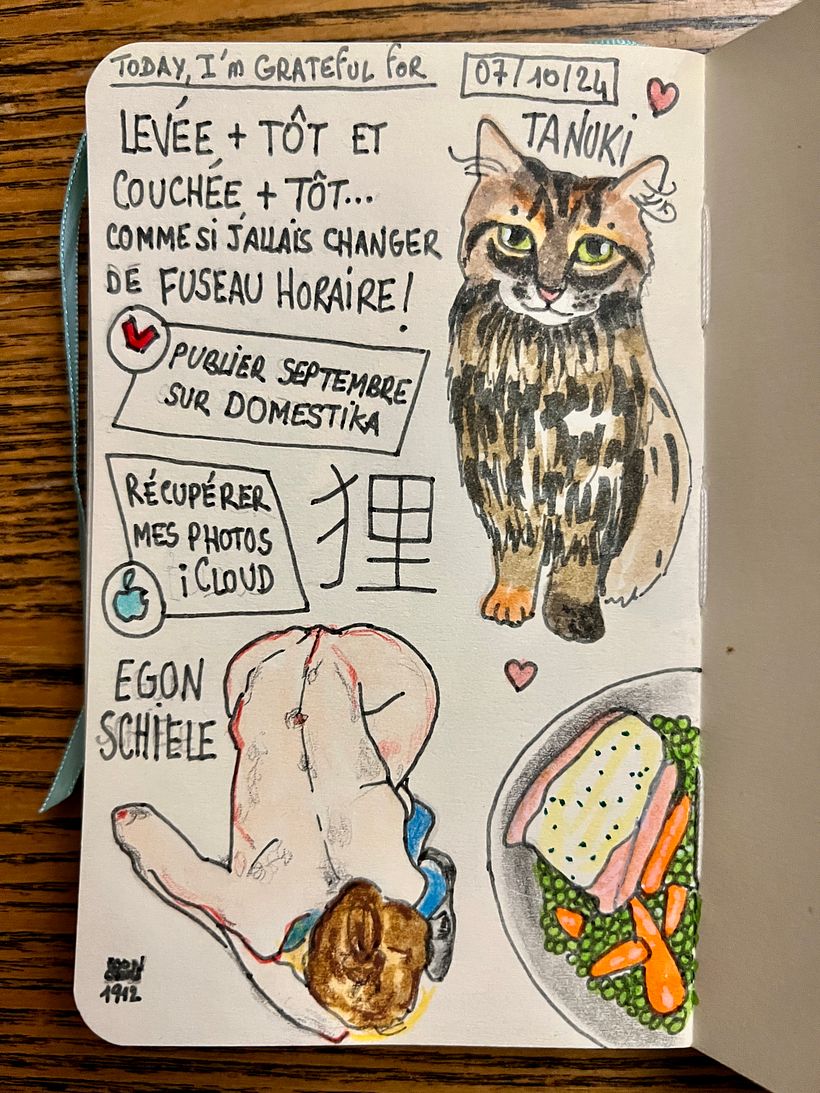 TODAY, I'm GRATEFUL for
07/10/24
LEVÉE + TÔT ET
COUCHÉE + TÔT...
COMME SI J'ALLAIS CHANGER
DE FUSEAU HORAIRE!
TANUKI
PUBLIER SEPTEMBRE
SUR DOMESTIKA
RÉCUPÉRER
MES PHOTOS
iCLOUD
狸
EGON
SCHiELE
1912